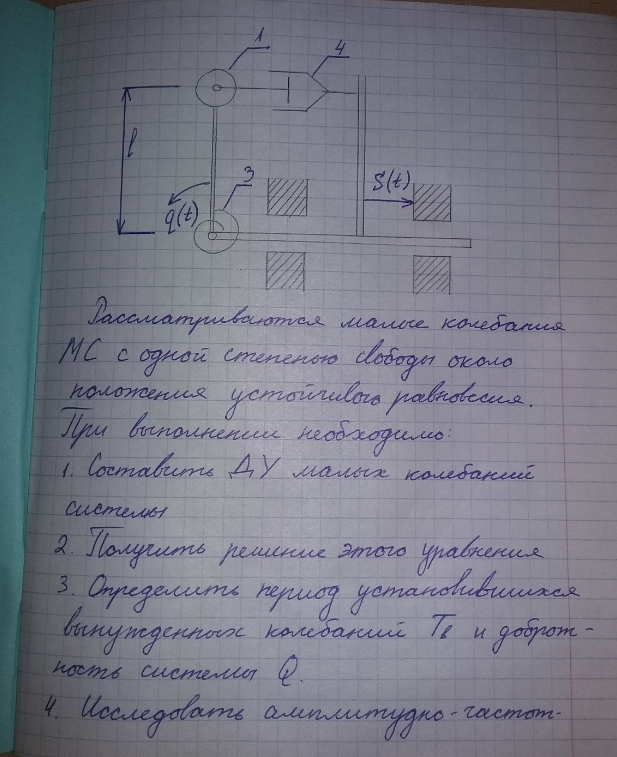 1
4
l
3
q(t)
S(t)
Рассматриваются малые колебания
МС с одной степенью свободы около
положения устойчивого равновесия.
При выполнении необходимо:
1. Составить ДУ малых колебаний
системы
2. Получить решение этого уравнения
3. Определить период установившихся
вынужденных колебаний Tв и доброт-
ность системы Q.
4. Исследовать амплитудно-частот-